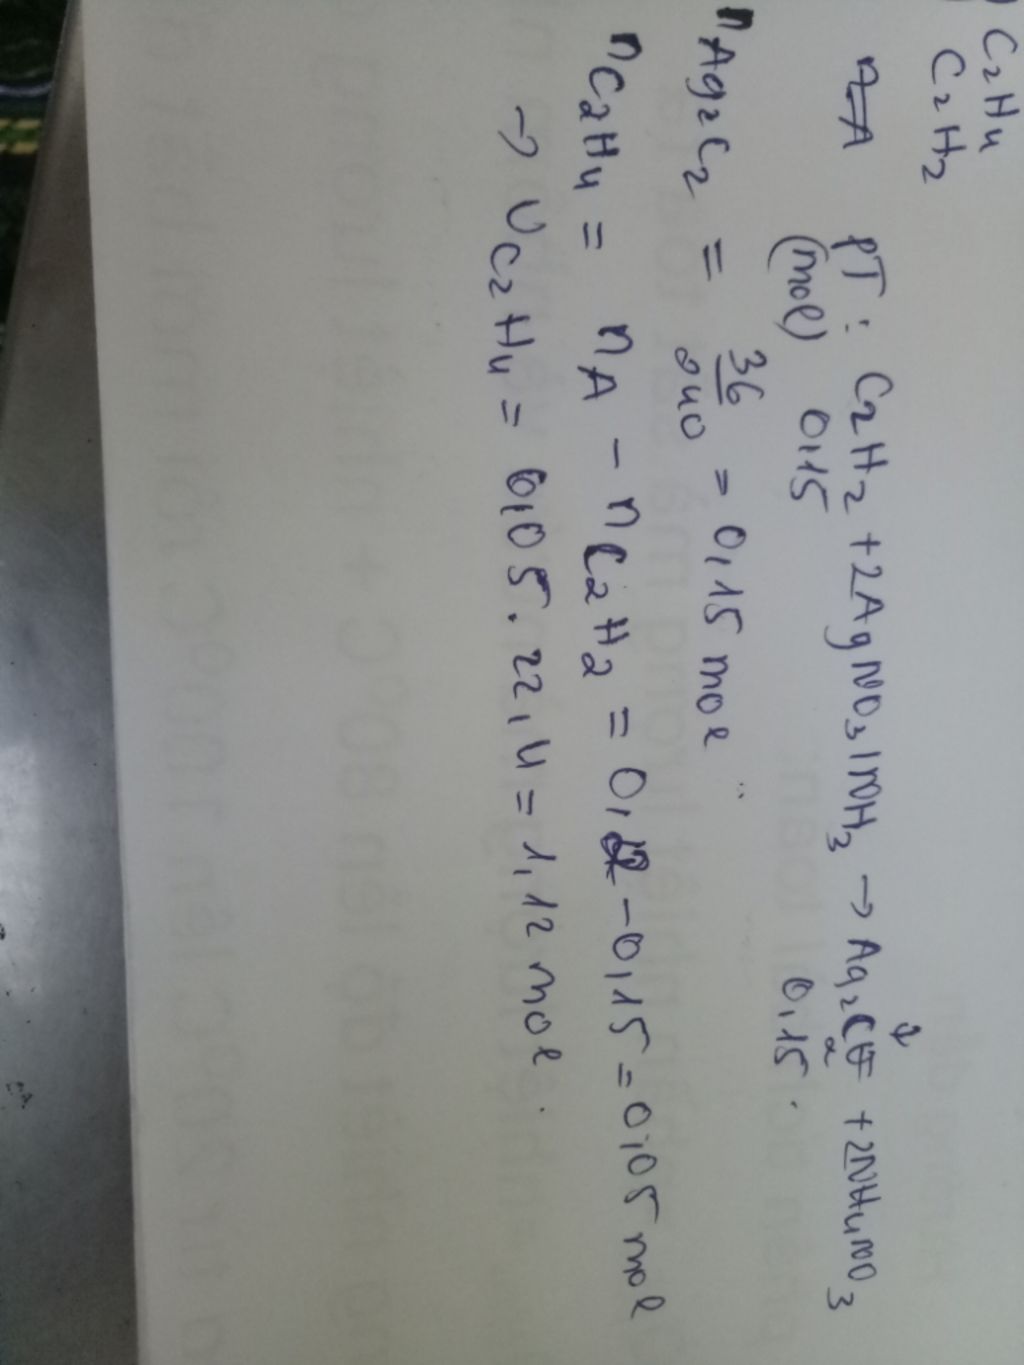 C2H4
C2H2
PT: C2H2 + 2AgNO3/NH3 → Ag2C2↓ + 2NH4NO3
(mol) 0,15 0,15.
nAg2C2 = 36/240 = 0,15 mol
nC2H4 = nA - nC2H2 = 0,2 - 0,15 = 0,05 mol
→ VC2H4 = 0,05. 22,4 = 1,12 mol.